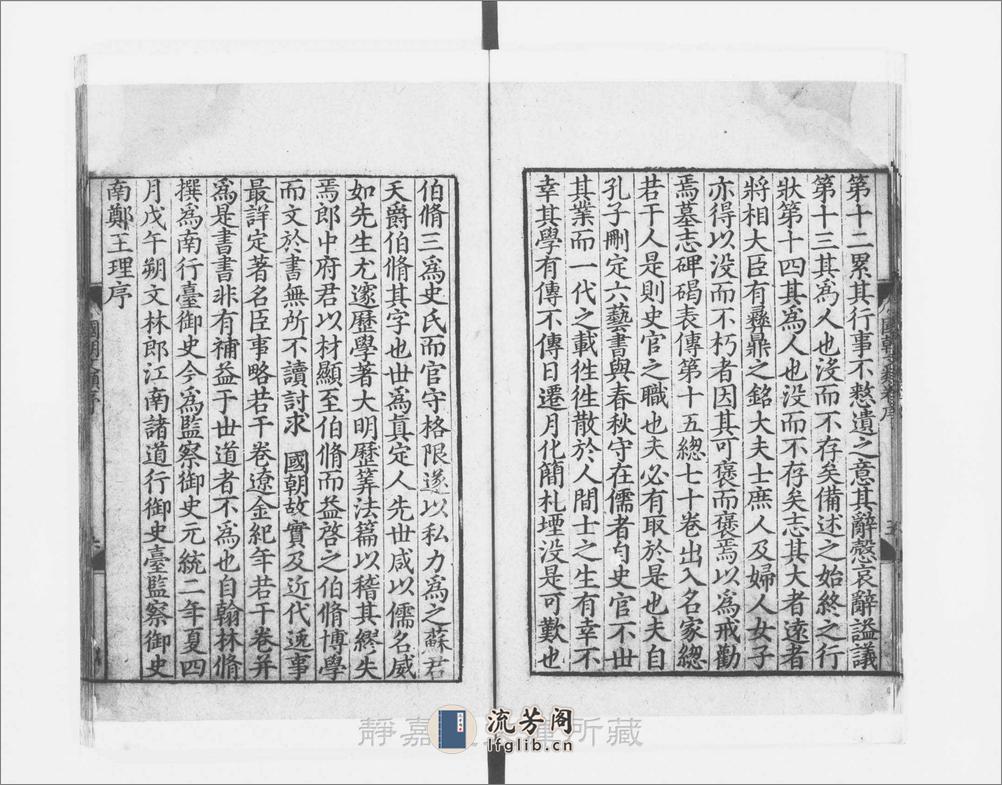 第十二累其行事不憗遺之意其辭慤哀辭謚議
第十三其為人也没而不存矣備述之始終之行
狀第十四其為人也没而不存矣志其大者遠者
將相大臣有彝鼎之銘大夫士庶人及婦人女子
亦得以没而不朽者因其可褒而褒焉以為戒勸
焉墓志碑碣表傳第十五總七十卷出入名家總
若干人是則史官之職也夫必有取於是也夫自
孔子刪定六藝書與春秋守在儒者句史官不世
其業而一代之載徃徃散於人間士之生有幸不
幸其學有傳不傳日遷月化簡札堙没是可歎也
伯脩三為史氏而官守格限遂以私力為之蘇君
天爵伯脩其字也世為真定人先世咸以儒名威
如先生尤邃歷學著大明歷筭法篇以稽其繆失
焉郎中府君以材顯至伯脩而益啓之伯脩博學
而文於書無所不讀討求 國朝故實及近代逸事
最詳定著名臣事略若干卷遼金紀年若干卷并
為是書書非有補益于世道者不為也自翰林脩
撰為南行臺御史今為監察御史元統二年夏四
月戊午朔文林郎江南諸道行御史臺監察御史
南鄭王理序
國朝文類序
靜嘉 所藏
流芳阁
lfglib.cn